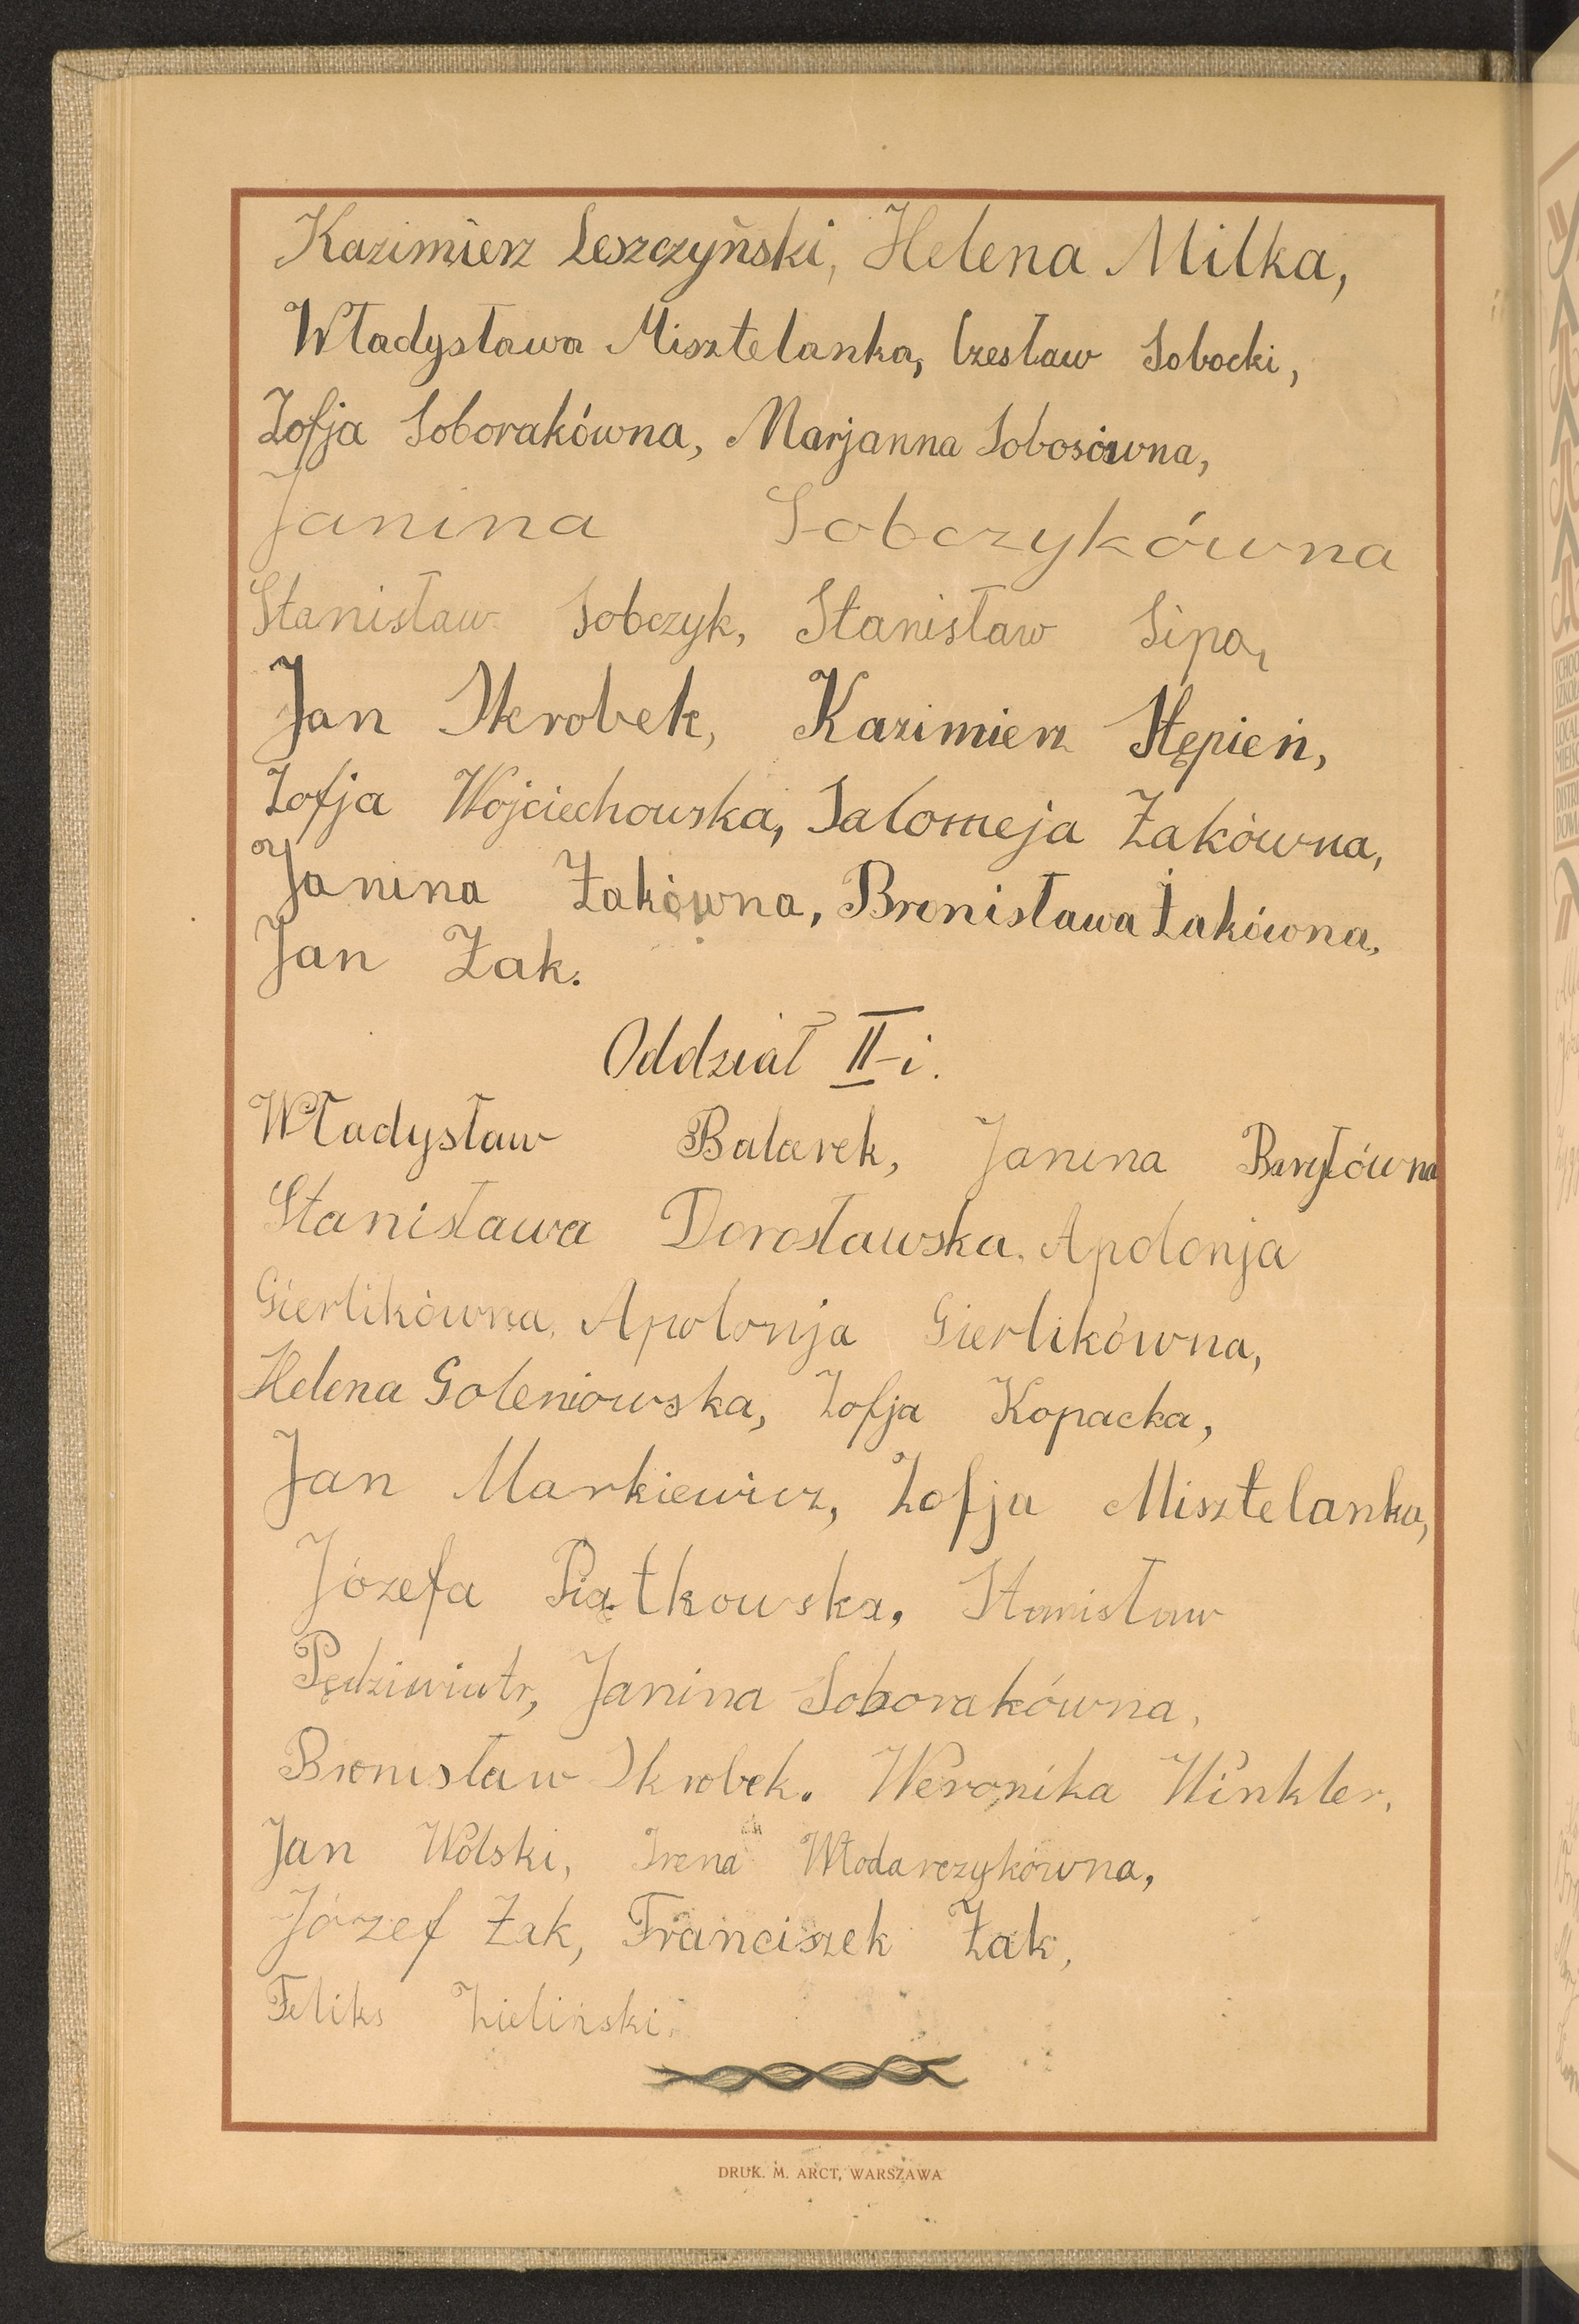 Kazimierz Leszczyński, Helena Milka,
Władysława Misztelanka, Czesław Sobocki,
Zofja Soborakówna, Marjanna Sobosówna,
Janina Sobczykówna
Stanisław Sobczyk, Stanisław Sipa,
Jan Skrobek, Kazimierz Stępień,
Zofja Wojciechowska, Salomeja Żakówna,
Janina Żakówna, Bronisława Żakówna,
Jan Żak.
Oddział II-i.
Władysław Balarek, Janina Baryłówna
Stanisława Dorosławska, Apolonja
Gierlikówna, Apolonja Gierlikówna,
Helena Goleniowska, Zofja Kopacka,
Jan Markiewicz, Zofja Misztelanka,
Józefa Piątkowska, Stanisław
Pędziwiatr, Janina Soborakówna,
Bronisław Skrobek. Weronika Winkler,
Jan Wolski, Irena Włodarczykówna,
Józef Żak, Franciszek Żak,
Feliks Zieliński.
DRUK. M. ARCT, WARSZAWA